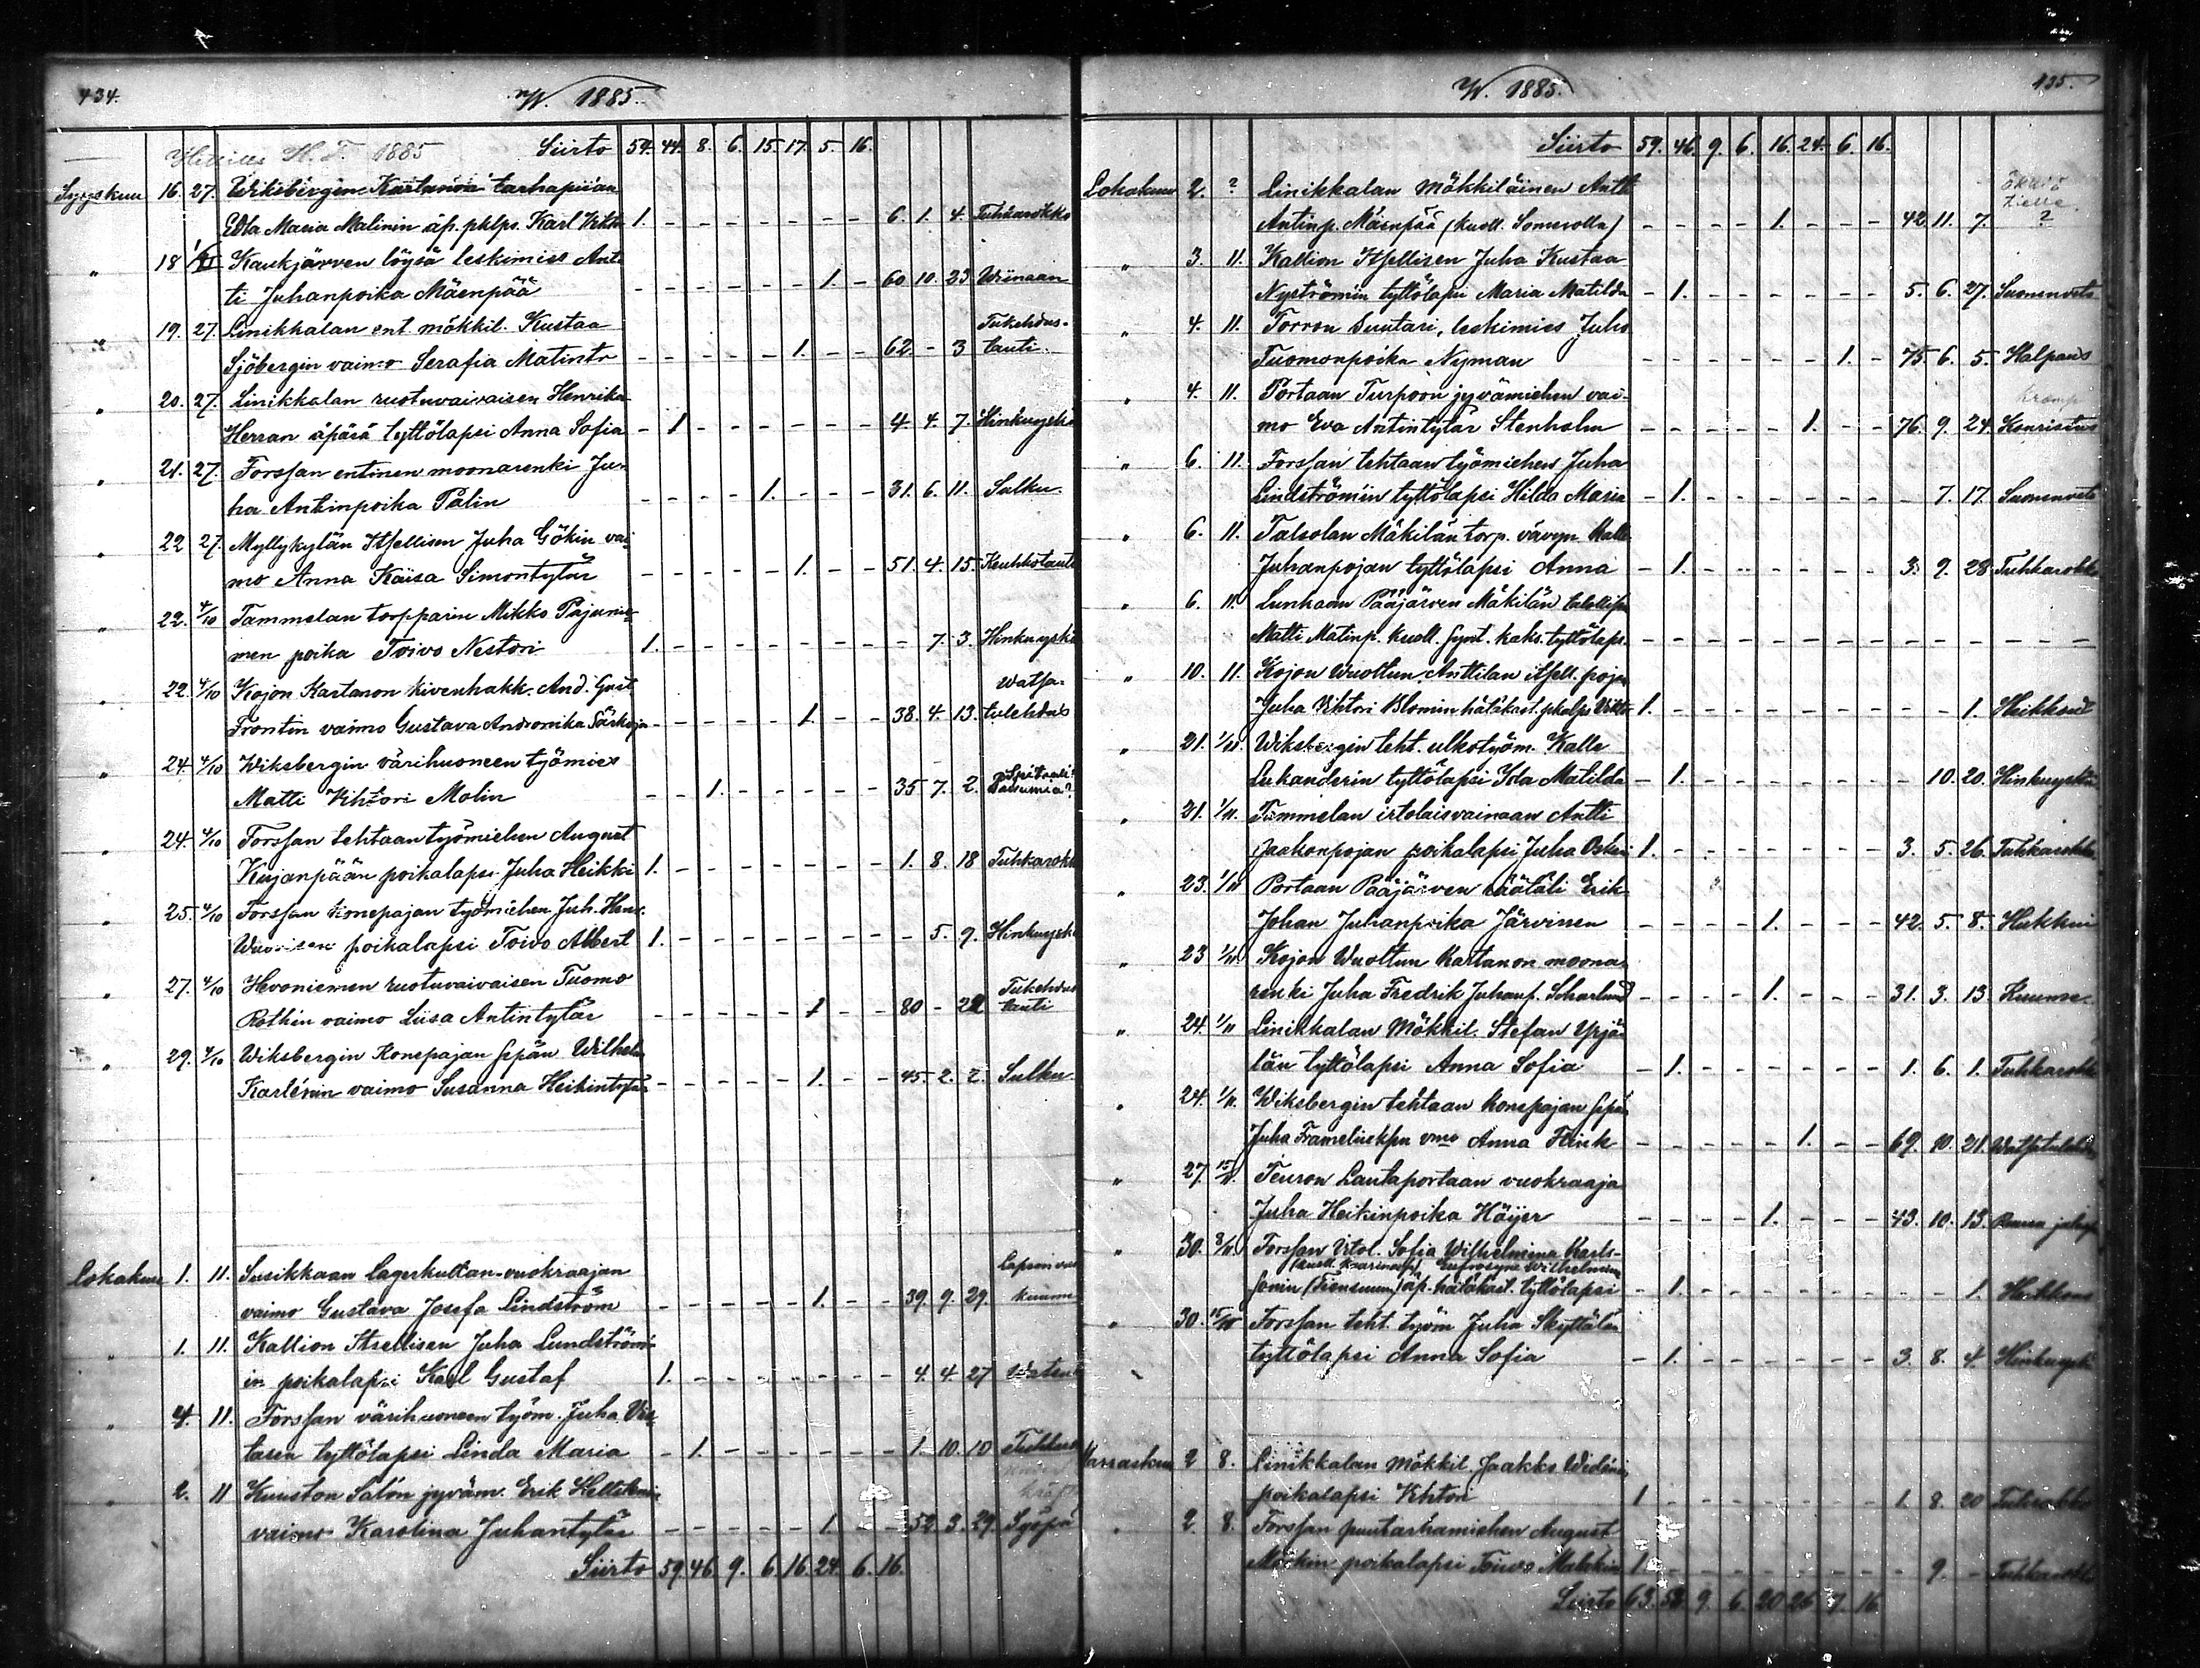 434.
W. 1885.
H. F. 1885 Siirto 54. 44. 8. 6. 15. 17. 5. 16.
Syyskuu 16. 27. Wiksbergin Kartanon tarhapiian
Edla Maria Malinin äp. pklps. Karl Vikto 1. - - - - - - - 6. 1. 4. Tuhkarokko
" 18 Kaukjärven löysä leskimies Ant-
ti Juhanpoika Mäenpää - - - - - - 1. - 60. 10. 23. Wiinaan
" 19. 27. Linikkalan ent. mökkil. Kustaa Tukehdus-
Sjöbergin vaimo Serafia Matintr - - - - - 1. - - 62. - 3 tauti.
" 20. 27. Linikkalan ruotuvaivaisen Henrika
Herran äpärä tyttölapsi Anna Sofia - 1 - - - - - - 4. 4. 7. Hinkuyskä
" 21. 27. Forssan entinen moonarenki Ju-
ha Antinpoika Pålin - - - - 1. - - - 31. 6. 11. Sulku.
" 22 27. Myllykylän Itsellisen Juha Gökin vai
mo Anna Kaisa Simontytär - - - - - 1. - - 51. 4. 15. Keuhkotauti
" 22. 4/10 Tammelan torpparin Mikko Pajunie-
men poika Toivo Nestori 1. - - - - - - - - 7. 3. Hinkuyskä
" 22. 4/10 Kojon Kartanon kivenhakk. And. Gust. Watsa-
Frontin vaimo Gustava Andronika - - - - - 1. - - 38. 4. 13. tulehdus
" 24. 4/10 Wiksbergin värihuoneen työmies
Matti Vihtori Molin - - 1. - - - - - 35. 7. 2.
" 24. 4/10 Forssan tehtaan työmiehen August
Kujanpään poikalapsi Juha Heikki 1. - - - - - - - 1. 8. 18 Tuhkarokk
" 25. 4/10 Forssan konepajan työmiehen Juh. Henr.
Wuorisen poikalapsi Toivo Albert 1. - - - - - - - - 5. 9. Hinkuyskä
" 27. 4/10 Hevoniemen ruotuvaivaisen Tuomo Tukehdus
Rothin vaimo Liisa Antintytär - - - - - 1 - - 80 - tauti
" 29. 4/10 Wiksbergin Konepajan sepän Wilhelm
Karlénin vaimo Susanna Heikintytär - - - - - 1. - - 45. 2. 2. Sulku.
Lokakuu 1. 11. Susikkaan Lagerkultan-vuokraajan
vaimo Gustava Josefa Lindström - - - - - 1. - - 39. 9. 29. kuume
" 1. 11. Kallion Itsellisen Juha Lundström-
in poikalapsi Karl Gustaf 1. - - - - - - - 4. 4. 27
" 4. 11. Forssan värihuoneen työm. Juha
tasen tyttölapsi Linda Maria - 1. - - - - - - 1. 10. 10
" 2. 11 Kuuston Salon jyväm. Erik
vaimo Karolina Juhantytär - - - - - 1. - - 52. 3. 29. Syöpä
Siirto 59. 46. 9. 6. 16. 24. 6. 16.
W. 1885. 435.
Siirto 59. 46. 9. 6. 16. 24. 6. 16.
Lokakuu 2. ? Linikkalan Mökkiläinen Antti
Antinp. Mäenpää (kuoll. Somerolla) - - - - 1. - - - 42. 11. 7. ?
" 3. 11. Kallion Itsellisen Juha Kustaa
Nyströmin tyttölapsi Maria Matilda - 1. - - - - - - 5. 6. 27. Suonenveto
" 4. 11. Torron Suutari, leskimies Juho
Tuomonpoika Nyman - - - - - - 1. - 75. 6. 5. Halpaus
" 4. 11. Portaan Turpoon jyvämiehen vai- kramp
mo Eva Antintytär Stenholm - - - - - 1. - - 76. 9. 24.
" 6. 11. Forssan tehtaan työmiehen Juha
Lindströmin tyttölapsi Hilda Maria - 1. - - - - - - - 7. 17. Suonenveto
" 6. 11. Talsolan Mäkilän torp. vävyn Kalle
Juhanpojan tyttölapsi Anna - 1. - - - - - - 3. 9. 28. Tuhkarokko
" 6. 11. Lunkaan Pääjärven Mäkilän talollisen
Matti Matinp. kuoll. synt. kaks. tyttölaps. - - - - - - - - - - -
" 10. 11. Kojon Wuoltun Anttilan itsell. pojan
Juha Vihtori Blomin hätäkast. pkalps Viktor 1. - - - - - - - - - 1. Heikkous
" 21. 1/11. Wiksbergin teht. ulkotyöm. Kalle
Lukanderin tyttölapsi Ida Matilda - 1. - - - - - - - 10. 20. Hinkuyskä
" 21. 1/11. Tammelan irtolaisvainaan Antti
Jaakonpojan poikalapsi Juha Oskari 1. - - - - - - - 3. 5. 26. Tuhkarokko
" 23. 1/11 Portaan Pääjärven räätäli Erik
Johan Juhanpoika Järvinen - - - - 1. - - - 42. 5. 8. Hukkui
" 23 1/11. Kojon Wuoltun Kartanon moona-
renki Juha Fredrik Juhanp. Scharlund - - - - 1. - - - 31. 3. 13. Kuume.
" 24. 1/11 Linikkalan Mökkil. Stefan Ypjä-
län tyttölapsi Anna Sofia - 1. - - - - - - 1. 6. 1. Tuhkarokk
" 24. 1/11. Wiksbergin tehtaan konepajan sepän
Juha vmo Anna - - - - - 1. - - 69. 10. 21.
" 27. 15/11. Teuron Lautaportaan vuokraaja
Juha Heikinpoika Höijer - - - - 1. - - - 43. 10. 13.
" 30. 8/11. Forssan Sofia Wilhelmina Karls-
Eufrosyne Wilhelmina
sonin äp. hätäkast. tyttölapsi - 1. - - - - - - - - 1. Heikkous
" 30. 15/11 Forssan teht. työm Juha Skyttälän
tyttölapsi Anna Sofia - 1. - - - - - - 3. 8. 4. Hinkuysk
Marraskuu 2 8. Linikkalan Mökkil. Jaakko Widénin
poikalapsi Vihtori 1 - - - - - - - 1. 8. 20
" 2. 8. Forssan puutarhamiehen August
poikalapsi Toivo 1. - - - - - - - - 9. - Tuhkarokk
Siirto 63. 52. 9. 6. 20. 26. 7. 16